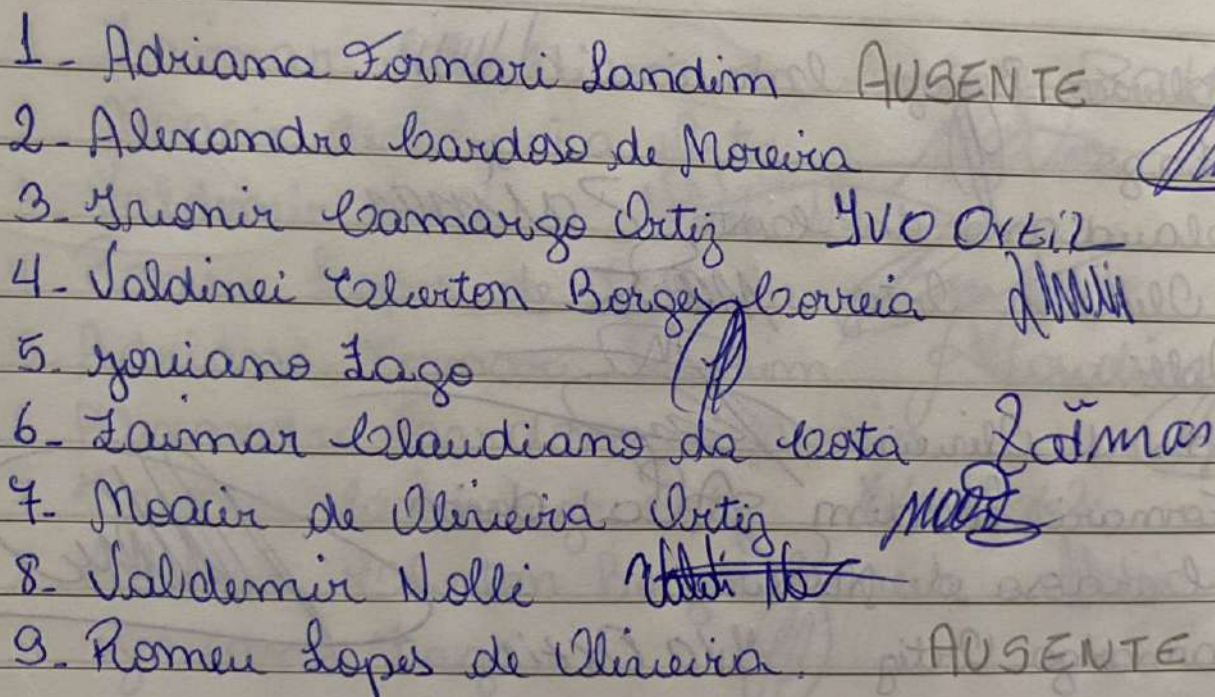 1- Adriana Fornari Landim AUSENTE
2- Alexandre Cardoso de Moreira
3- Camargo Ortiz IVO Ortiz
4- Valdinei Cleverton Borges Correia
5. Joviano Lago
6- Laimar Claudiano da Costa
7- Moacir de Oliveira Ortiz
8- Valdemir Nolli
9- Romeu Lopes de Oliveira. AUSENTE